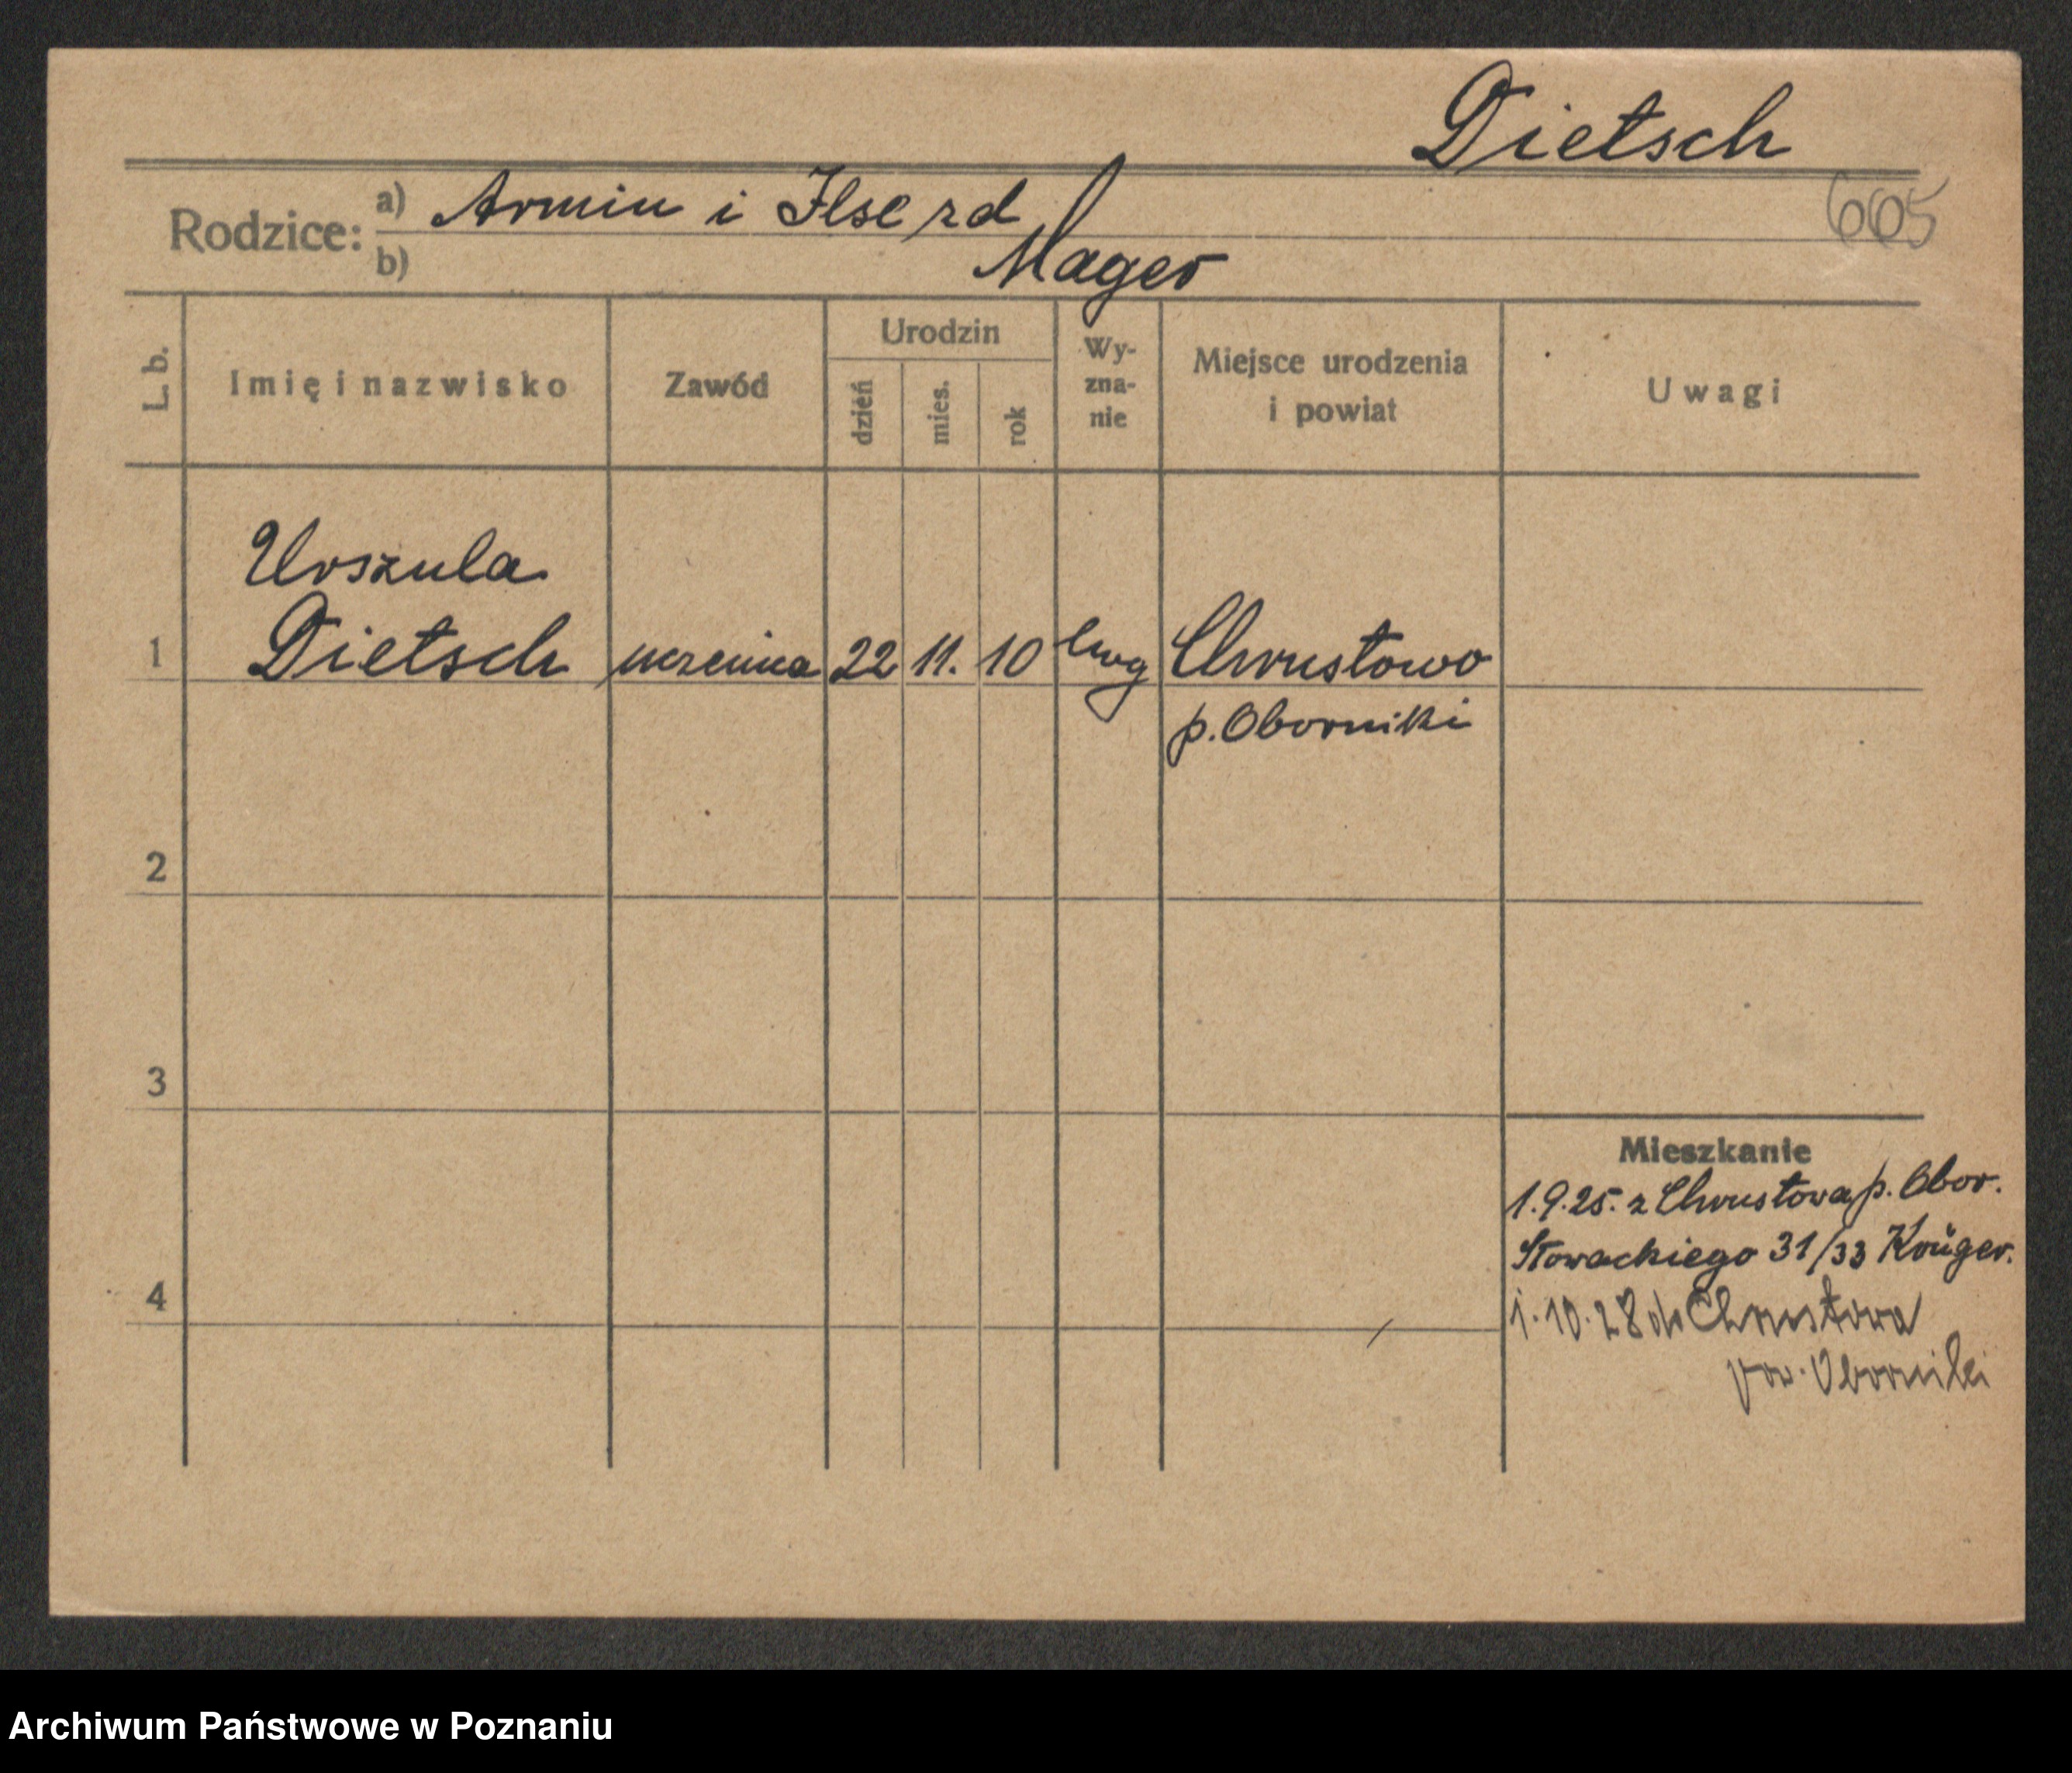 Dietsch
665
Rodzice: a) Armin i Ilse zd
b) Mager
L. b.
Imię i nazwisko
Zawód
Urodzin
dzień
mies.
rok
Wy-
zna-
nie
Miejsce urodzenia
i powiat
Uwagi
Urszula
1 Dietsch uczenica 22 11. 10 Ewg Chrustowo
p. Oborniki
2
3
4
Mieszkanie
1.9.25. z Chrustowa p. Obor.
Słowackiego 31/33 Krüger.
1.10.28 do Chrustowa
pow. Oborniki
Archiwum Państwowe w Poznaniu